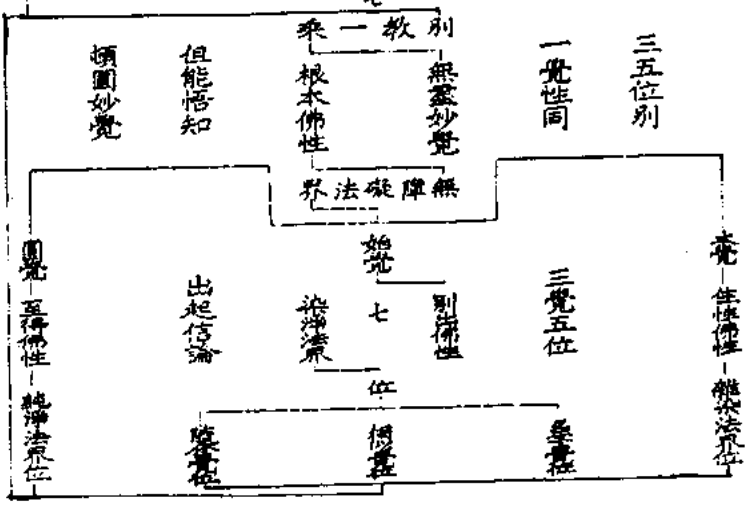 別教一乘
三五位別
一覺性同
無盡妙覺
根本佛性
但能悟知
頓圓妙覺
無障礙法界
本覺
住性佛性
離染法界位
三覺五位
始覺
引出佛性
七
位
染淨法界
出起信論
圓覺
至得佛性
純淨法界位